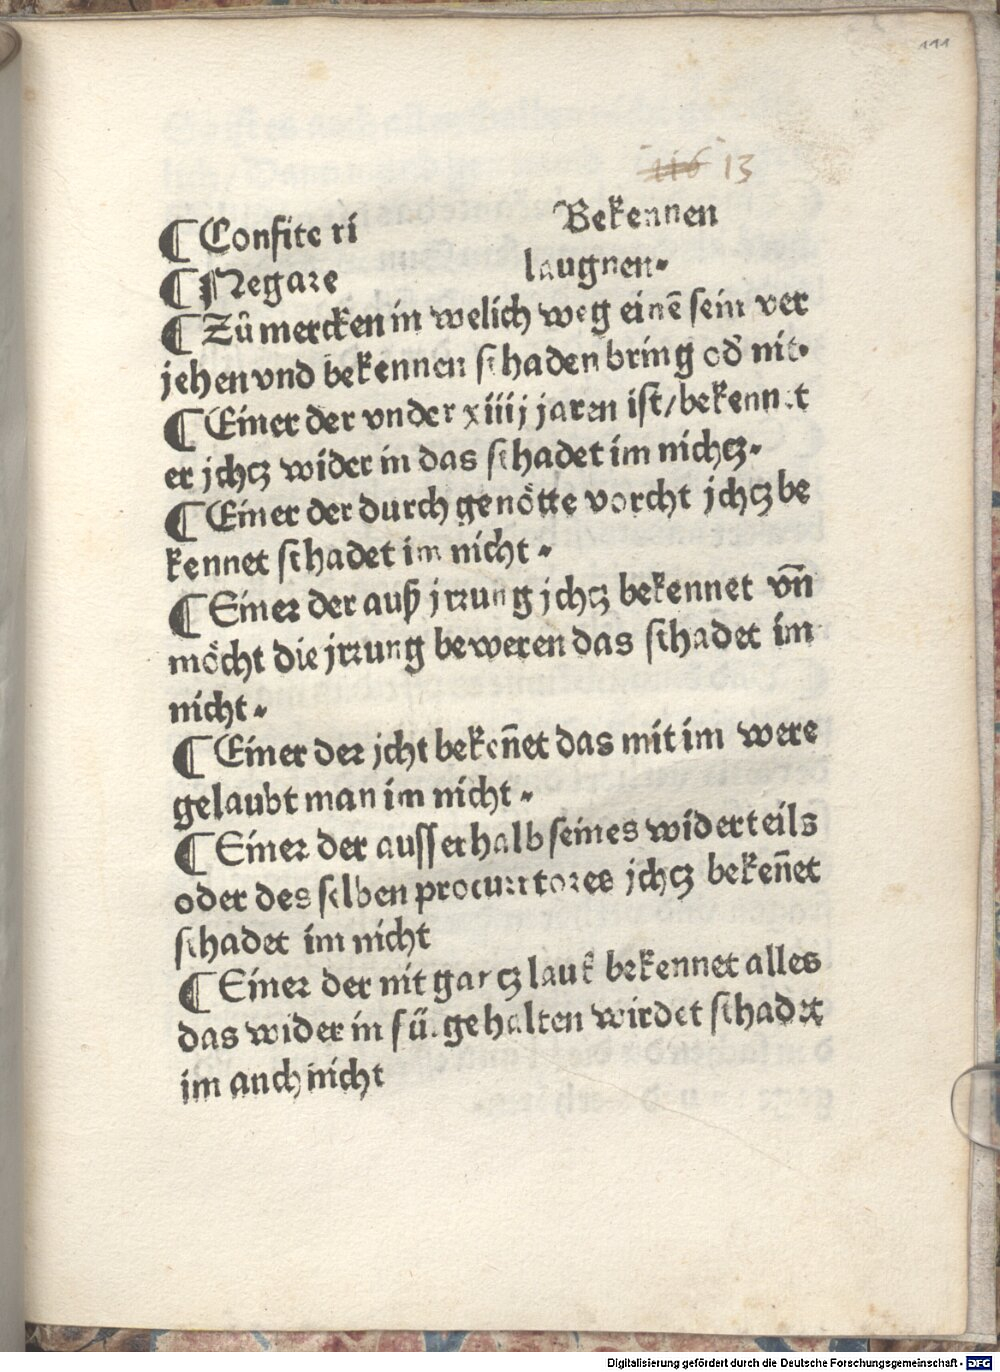 111
116 13
¶ Confiteri Bekennen
¶ Negare laugnen.
¶ Zů mercken in welich weg einē sein ver
jehen vnd bekennen schaden bring od' nit.
¶ Einer der vnder xiiij jaren ist/bekennet
er jchcz wider in das schadet im nichcz.
¶ Einer der durch genötte vorcht jchcz be
kennet schadet im nicht.
¶ Einer der auß jrrung jchcz bekennet vn̄
möcht die jrrung beweren das schadet im
nicht.
¶ Einer der jcht beken̄et das mit im were
gelaubt man im nicht.
¶ Einer der ausserhalb seines widerteils
oder des selben procuratores jchcz beken̄et
schadet im nicht
¶ Einer der nit garcz laut bekennet alles
das wider in für gehalten wirdet schadet
im auch nicht
Digitalisierung gefördert durch die Deutsche Forschungsgemeinschaft - DFG